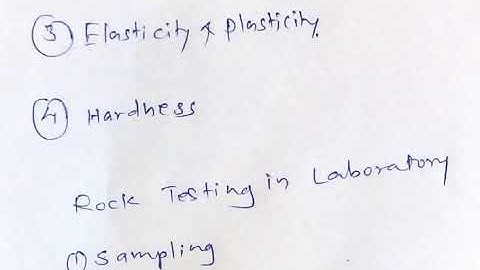 ③ Elasticity & Plasticity.
④ Hardness
Rock Testing in Laboratory
(1) Sampling